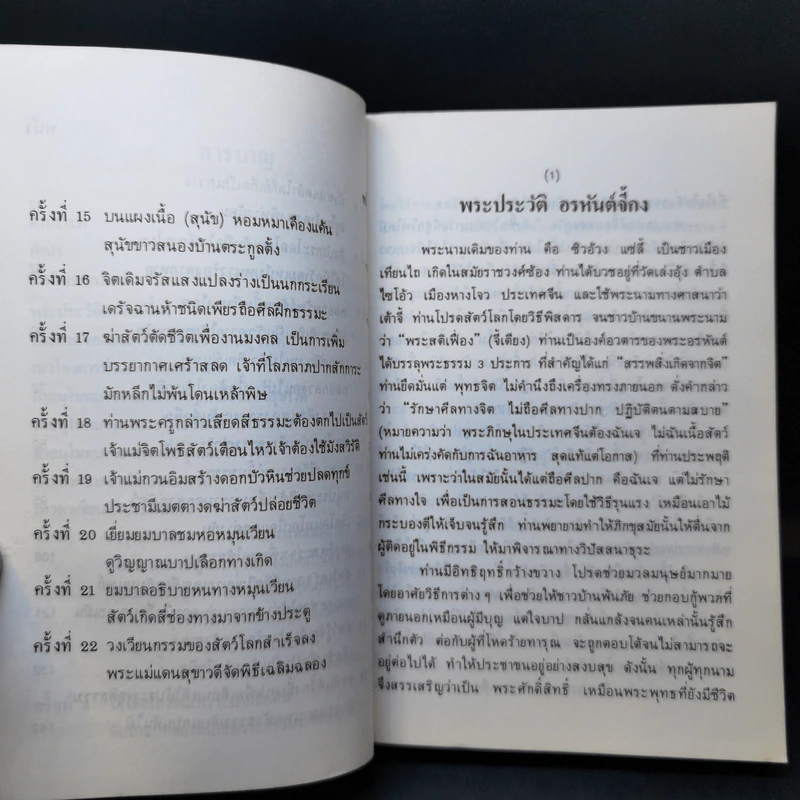 ครั้งที่ 15 บนแผงเนื้อ (สุนัข) หอมหมาเคืองแค้น
สุนัขขาวสนองบ้านตระกูลตั้ง
ครั้งที่ 16 จิตเดิมจรัสแสงแปลงร่างเป็นนกกระเรียน
เดรัจฉานห้าชนิดเพียรถือศีลฝึกธรรมะ
ครั้งที่ 17 ฆ่าสัตว์ตัดชีวิตเพื่องานมงคล เป็นการเพิ่ม
บรรยากาศเศร้าสลด เจ้าที่โลภลาภปากสักการะ
มักหลีกไม่พ้นโดนเหล้าพิษ
ครั้งที่ 18 ท่านพระครูกล่าวเสียดสีธรรมะต้องตกไปเป็นสัตว์
เจ้าแม่จิตโพธิสัตว์เตือนไหว้เจ้าต้องใช้มังสวิรัติ
ครั้งที่ 19 เจ้าแม่กวนอิมสร้างดอกบัวหินช่วยปลดทุกข์
ประชามีเมตตางดฆ่าสัตว์ปล่อยชีวิต
ครั้งที่ 20 เยี่ยมยมบาลชมหอหมุนเวียน
ดูวิญญาณบาปเลือกทางเกิด
ครั้งที่ 21 ยมบาลอธิบายหนทางหมุนเวียน
สัตว์เกิดสี่ช่องทางมาจากข้างประตู
ครั้งที่ 22 วงเวียนกรรมของสัตว์โลกสำเร็จลง
พระแม่แดนสุขาวดีจัดพิธีเฉลิมฉลอง
(1)
พระประวัติ อรหันต์จี้กง
พระนามเดิมของท่าน คือ ซิวอ้วง แซ่ลี้ เป็นชาวเมือง
เทียนไถ เกิดในสมัยราชวงศ์ซ้อง ท่านได้บวชอยู่ที่วัดเล่งอุ้ง ตำบล
ไซโอ้ว เมืองหางโจว ประเทศจีน และใช้พระนามทางศาสนาว่า
เต้าจี้ ท่านโปรดสัตว์โลกโดยวิธีพิสดาร จนชาวบ้านขนานพระนาม
ว่า "พระสติเฟื่อง" (จี้เตียง) ท่านเป็นองค์อวตารของพระอรหันต์
ได้บรรลุพระธรรม 3 ประการ ที่สำคัญได้แก่ "สรรพสิ่งเกิดจากจิต"
ท่านยึดมั่นแต่ พุทธจิต ไม่คำนึงถึงเครื่องทรงภายนอก ดั่งคำกล่าว
ว่า "รักษาศีลทางจิต ไม่ถือศีลทางปาก ปฏิบัติตนตามสบาย"
(หมายความว่า พระภิกษุในประเทศจีนต้องฉันเจ ไม่ฉันเนื้อสัตว์
ท่านไม่เคร่งคัดกับการฉันอาหาร สุดแท้แต่โอกาส) ที่ท่านประพฤติ
เช่นนี้ เพราะว่าในสมัยนั้นได้แต่ถือศีลปาก คือฉันเจ แต่ไม่รักษา
ศีลทางใจ เพื่อเป็นการสอนธรรมะโดยใช้วิธีรุนแรง เหมือนเอาไม้
กระบองตีให้เจ็บจนรู้สึก ท่านพยายามทำให้ภิกขุสมัยนั้นให้ตื่นจาก
ผู้ติดอยู่ในพิธีกรรม ให้มาพิจารณาทางวิปัสสนาธุระ
ท่านมีอิทธิฤทธิ์กว้างขวาง โปรดช่วยมวลมนุษย์มากมาย
โดยอาศัยวิธีการต่าง ๆ เพื่อช่วยให้ชาวบ้านพ้นภัย ช่วยกอบกู้พวกที่
ดูภายนอกเหมือนผู้มีบุญ แต่ใจบาป กลั่นแกล้งจนคนเหล่านั้นรู้สึก
สำนึกตัว ต่อกับผู้ที่โหดร้ายทารุณ จะถูกตอบโต้จนไม่สามารถจะ
อยู่ต่อไปได้ ทำให้ประชาชนอยู่อย่างสงบสุข ดังนั้น ทุกผู้ทุกนาม
จึงสรรเสริญว่าเป็น พระศักดิ์สิทธิ์ เหมือนพระพุทธที่ยังมีชีวิต